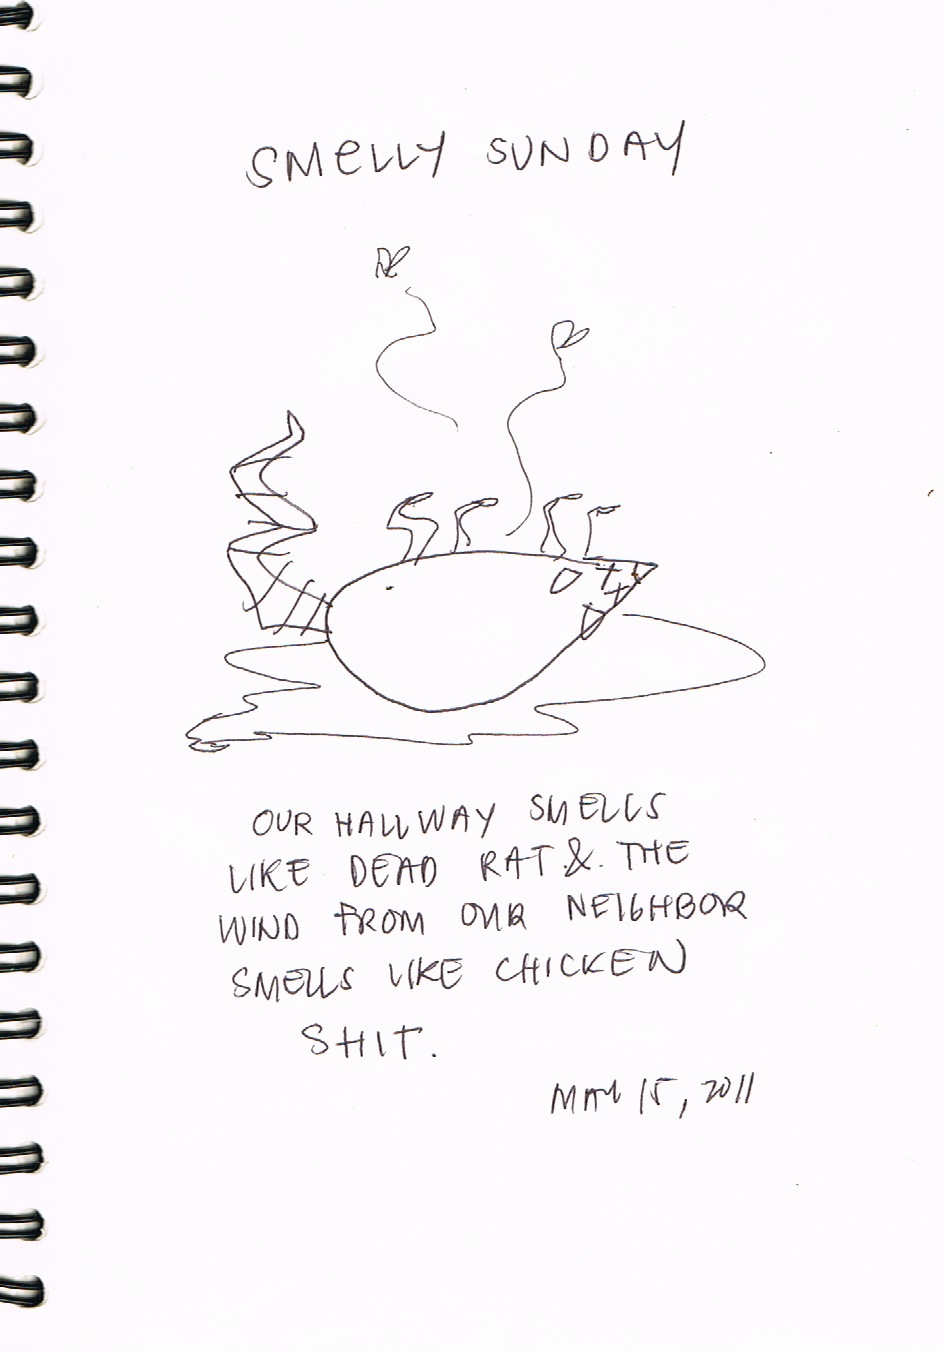 SMELLY SUNDAY
OUR HALLWAY SMELLS
LIKE DEAD RAT &. THE
WIND FROM OUR NEIGHBOR
SMELLS LIKE CHICKEN
SHIT.
MAY 15, 2011